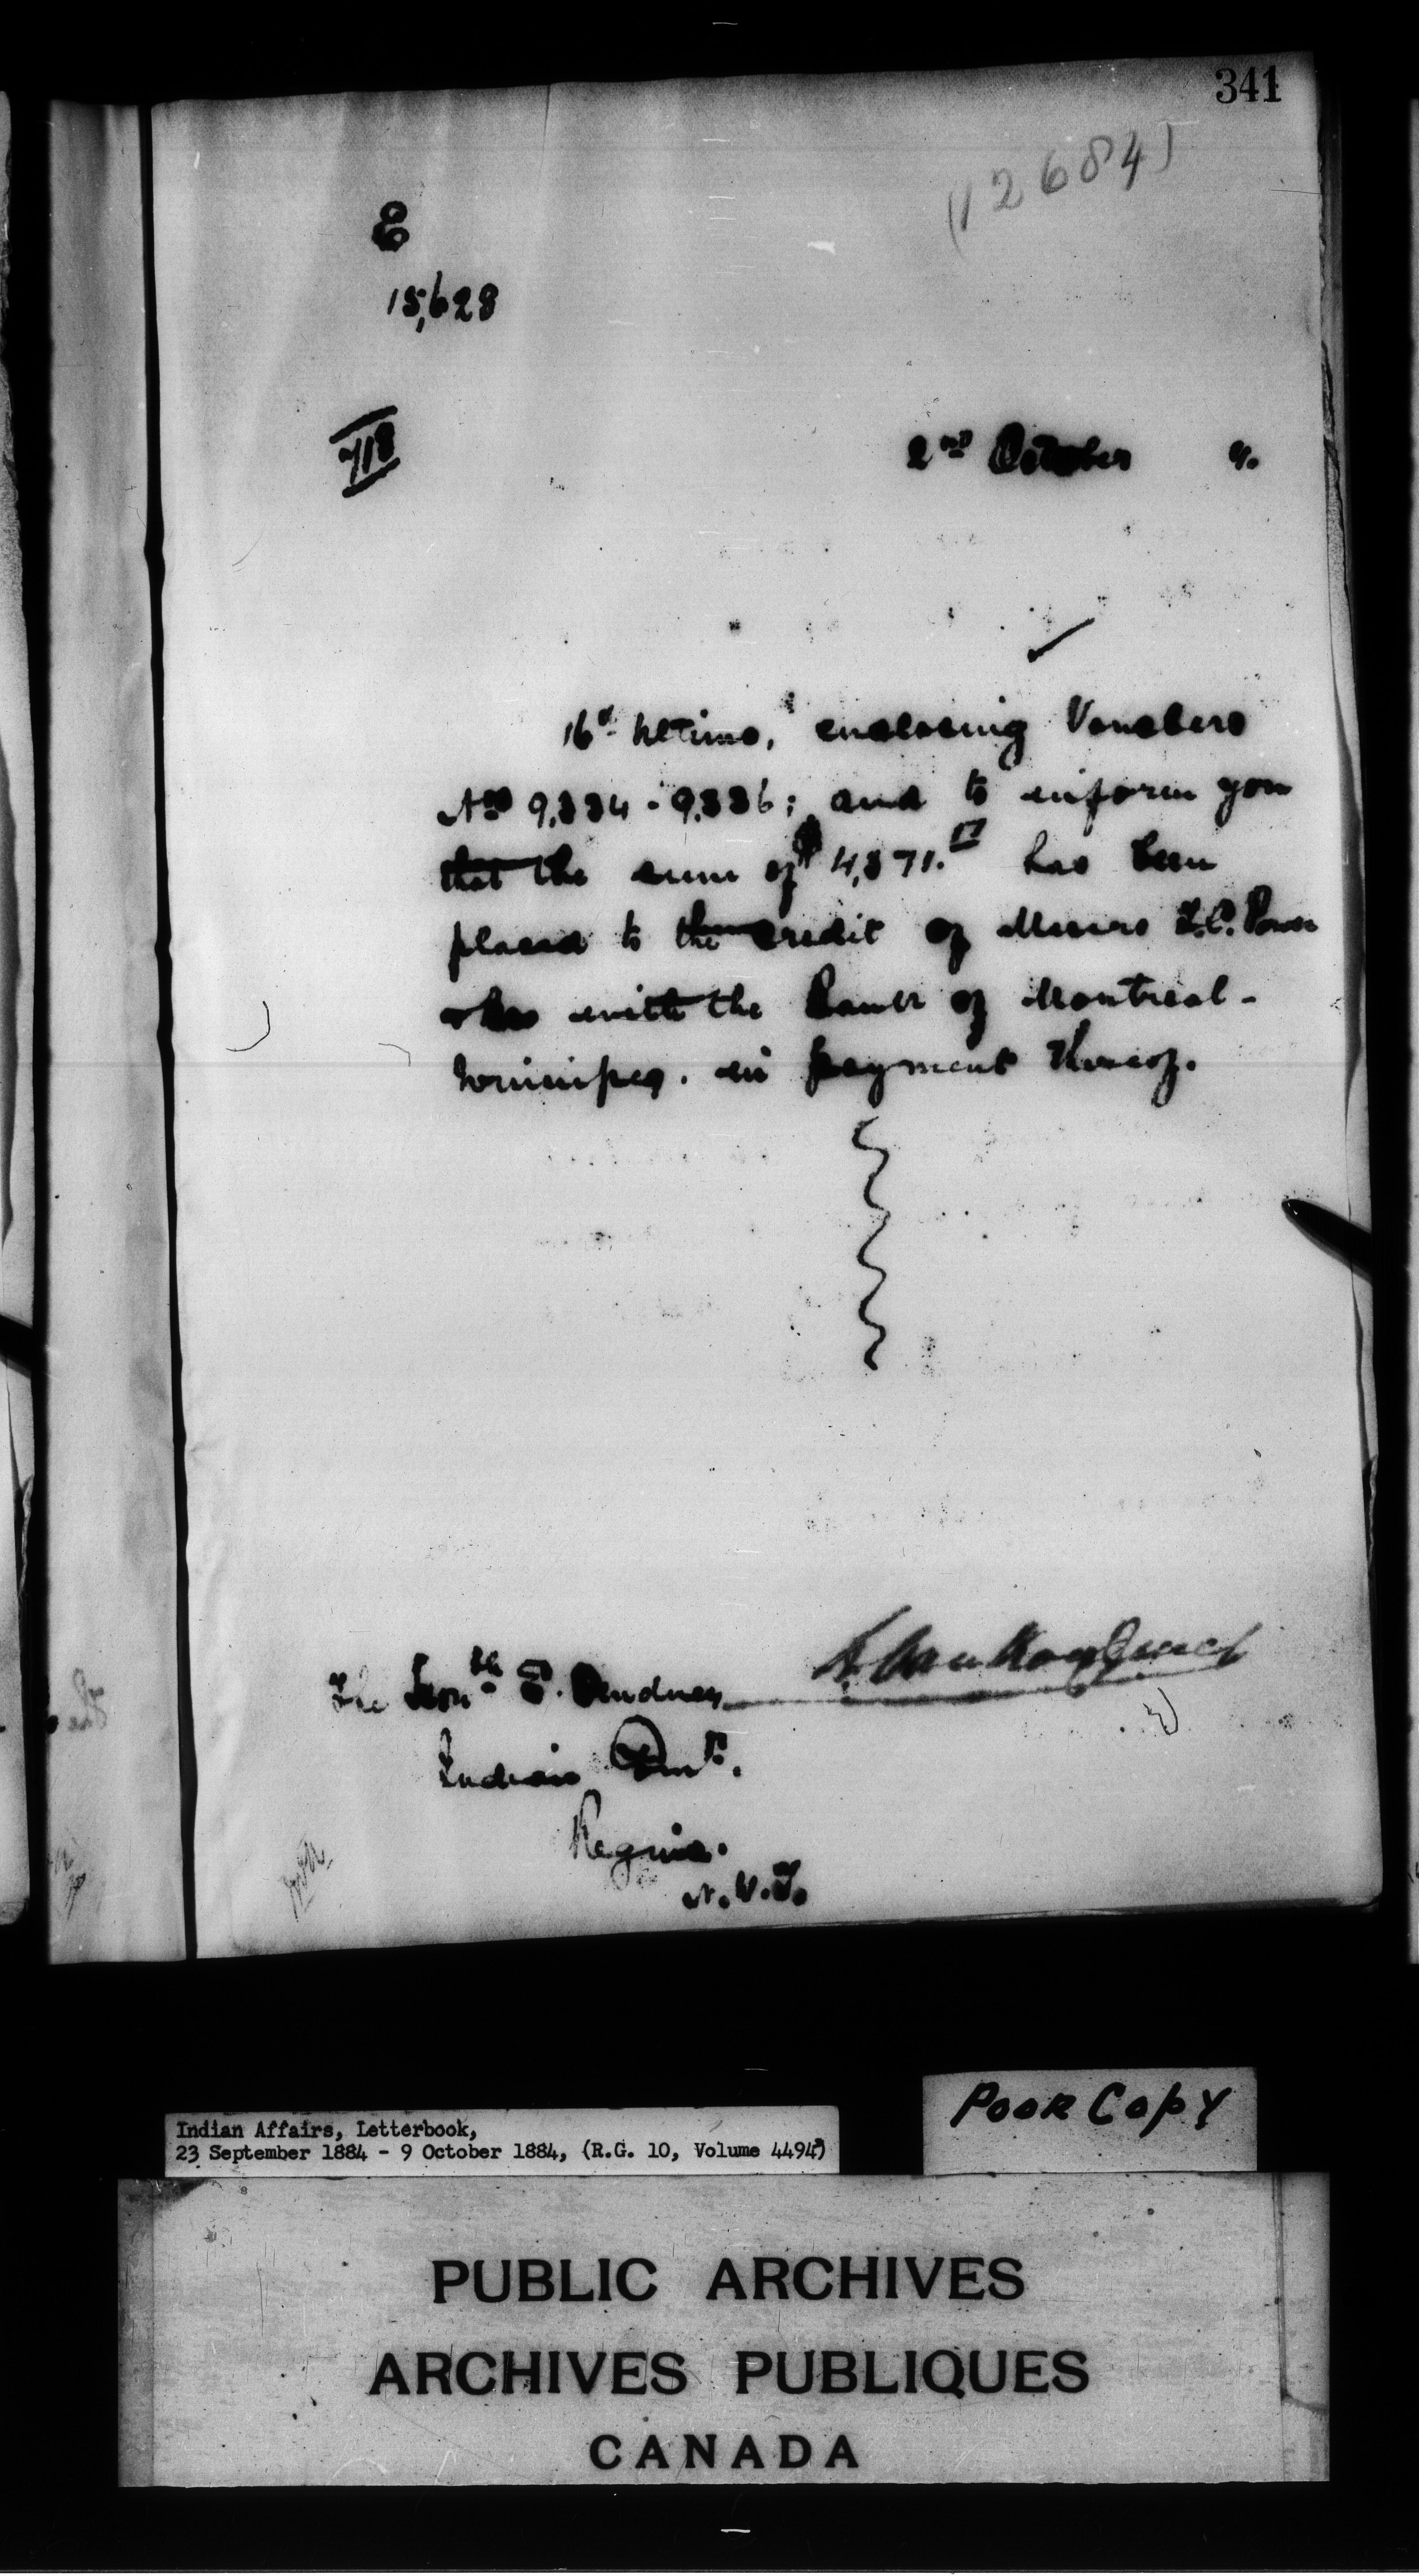 341
(12684)
E
15,628
718
2nd October
16th Ultimo, enclosing Vouchers
Nos 9,334 - 9,336; and to inform you
that the sum of $4,371.17 has been
placed to the credit of Messrs I.C. Power
with the Bank of Montreal -
Winnipeg. in payment thereof.
L. VanKoughnet
The Honble E. Dewdney
Indian Comr.
Regina.
N.W.T.
Indian Affairs, Letterbook,
23 September 1884 - 9 October 1884, (R.G. 10, Volume 4494)
POOR COPY
PUBLIC ARCHIVES
ARCHIVES PUBLIQUES
CANADA